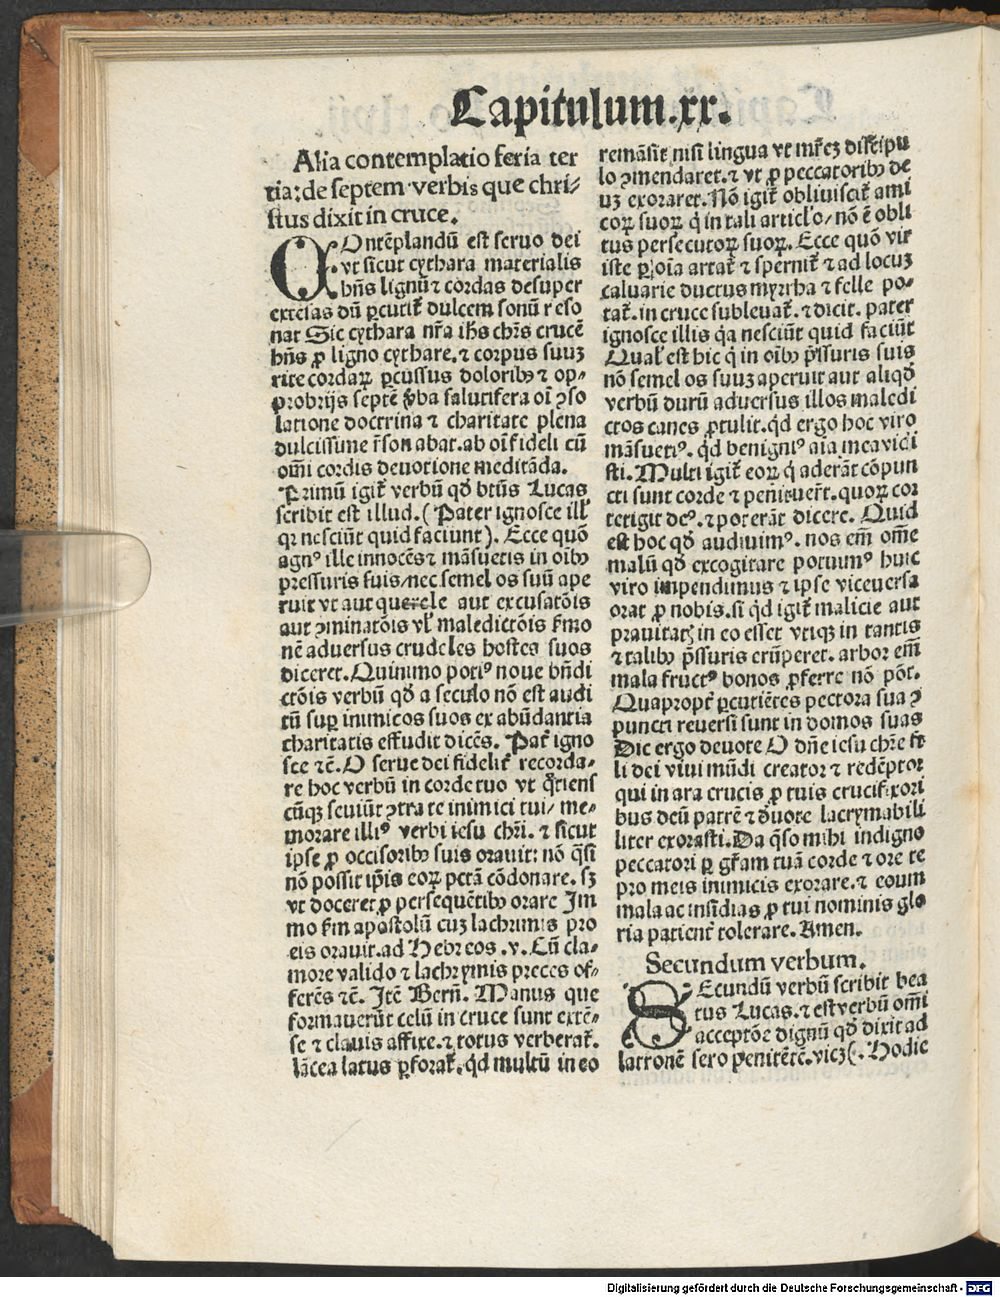 Capitulum.xx.
Alia contemplatio feria ter
tia: de septem verbis que chri-
stus dixit in cruce.
COntēplandū est seruo dei
vt sicut cythara materialis
hn̄s lignū ⁊ cordas desuper
extēsas dū ꝑcutit᷑ dulcem sonū reso
nat Sic cythara nr̄a ih̄s chr̄s crucē
hn̄s ꝓ ligno cythare. ⁊ corpus suuꝫ
rite cordaꝝ ꝑcussus doloribꝰ ⁊ op-
probrijs septē v̓ba salutifera oī ꝯso
latione doctrina ⁊ charitate plena
dulcissime r̄sonabat. ab oī fideli cū
om̄i cordis deuotione meditāda.
Primū igit᷑ verbū qd̄ bt̄us Lucas
scribit est illud. (Pater ignosce ill̓
qꝛ nesciūt quid faciunt). Ecce quō
agnꝰ ille innocēs ⁊ māsuetis in oībꝰ
pressuris suis/nec semel os suū ape
ruit vt aut querele aut excusatōis
aut ꝯminatōis vl̓ maledictōis s̓mo
nē aduersus crudeles hostes suos
diceret. Quinimo potiꝰ noue bn̄di
ctōis verbū qd̄ a seculo nō est audi
tū suꝑ inimicos suos ex abūdantia
charitatis effudit dicēs. Pat᷑ igno
sce ⁊c̄. O serue dei fidelit᷑ recorda-
re hoc verbū in corde tuo vt q̄tiens
cūqꝫ seuiūt ꝯtra te inimici tui/ me-
morare illiꝰ verbi iesu chr̄i. ⁊ sicut
ipse ꝓ occisoribꝰ suis orauit: nō q̄si
nō possit ip̄is eoꝝ pctā cōdonare. sꝫ
vt doceret ꝓ persequētibꝰ orare Im
mo s̓m apastolū cuꝫ lachrimis pro
eis orauit. ad Hebreos .v. Cū cla-
more valido ⁊ lachrymis preces of-
ferēs ⁊c̄. Itē Bern̄. Manus que
formauerūt celū in cruce sunt extē-
se ⁊ clauis affixe. ⁊ totus verberat᷑.
lācea latus ꝑforat᷑. qd̓ multū in eo
remāsit nisi lingua vt mr̄eꝫ discipu
lo ꝯmendaret. ⁊ vt ꝓ peccatoribꝰ de
uꝫ exoraret. Nō igit᷑ obliuiscit᷑ ami
coꝝ suoꝝ q̇ in tali articl̓o/ nō ē obli
tus persecutoꝝ suoꝝ. Ecce quō vir
iste ꝑ oīa artat᷑ ⁊ spernit᷑ ⁊ ad locuꝫ
caluarie ductus myrrha ⁊ felle po-
tat᷑. in cruce subleuat᷑. ⁊ dicit. pater
ignosce illis q̇a nesciūt quid faciūt
Qual̓ est hic q̇ in oībꝰ p̄ssuris suis
nō semel os suuꝫ aperuit aut aliqd̄
verbū durū aduersus illos maledi
ctos canes ꝓtulit. qd̓ ergo hoc viro
māsuetiꝰ. qd̓ benigniꝰ aīa mea vidi
sti. Multi igit᷑ eoꝝ q̇ aderāt cōpun
cti sunt corde ⁊ penituer̄t. quoꝝ cor
tetigit deꝰ. ⁊ poterāt dicere. Quid
est hoc qd̄ audiuimꝰ. nos em̄ om̄e
malū qd̄ excogitare potuimꝰ huic
viro impendimus ⁊ ipse viceuersa
orat ꝓ nobis. si qd̓ igit᷑ malicie aut
prauitat̓ in eo esset vtiqꝫ in tantis
⁊ talibꝰ p̄ssuris erūperet. arbor em̄
mala fructꝰ bonos ꝓferre nō pōt.
Quapropt̓ ꝑcutiētes pectora sua ⁊
puncti reuersi sunt in domos suas
Dic ergo deuote O dn̄e iesu chr̄e fi
li dei viui mūdi creator ⁊ redēptor
qui in ara crucis ꝓ tuis crucifixori
bus deū patrē ⁊ d̓uote lacrymabili
liter exorasti. Da q̄so mihi indigno
peccatori ꝑ gr̄am tuā corde ⁊ ore te
pro meis inimicis exorare. ⁊ eoum
mala ac insidias ꝓ tui nominis glo
ria patient᷑ tolerare. Amen.
Secundum verbum.
SEcundū verbū scribit bea
tus Lucas. ⁊ est verbū om̄i
acceptōe dignū qd̄ dixit ad
latronē sero penitētē. vicꝫ(. Hodie
Digitalisierung gefördert durch die Deutsche Forschungsgemeinschaft - DFG